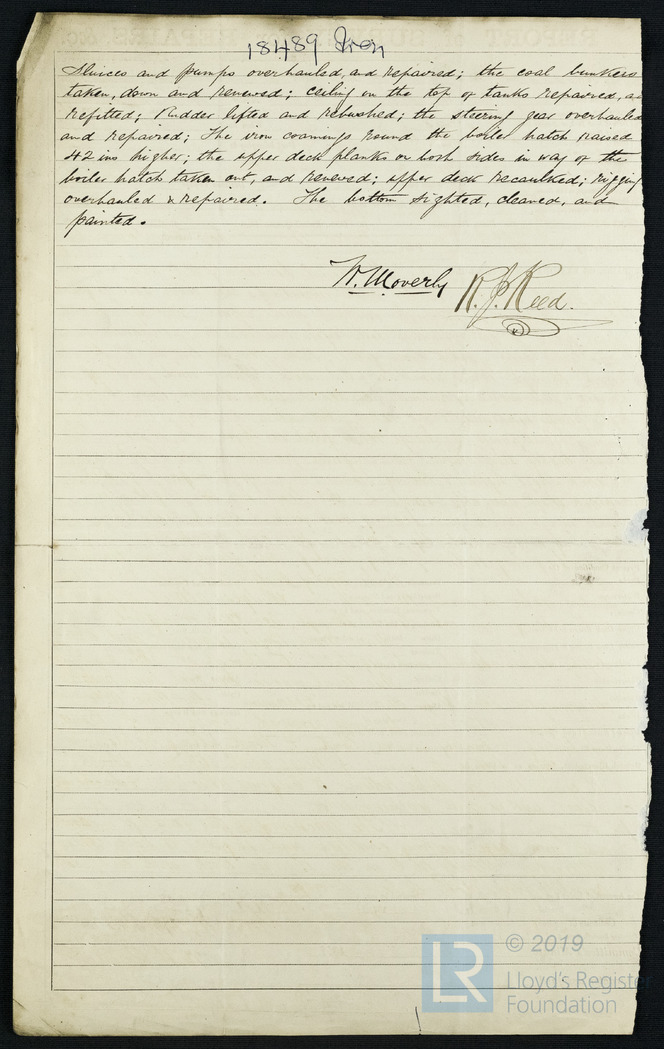 18489 Iron
Sluices and pumps overhauled, and repaired; the coal bunkers
taken, down and renewed; ceiling on the top of tanks repaired, an
refitted; Rudder lifted and rebushed; the steering gear overhauled
and repaired; The iron coamings round the boiler hatch raised
42 ins higher; the upper deck planks on both sides in way of the
boiler hatch taken out, and renewed; upper deck recaulked; rigging
overhauled & repaired. The bottom sighted, cleaned, and
painted.
W. Moverly R. J. Reed.
LR © 2019
Lloyd's Register
Foundation